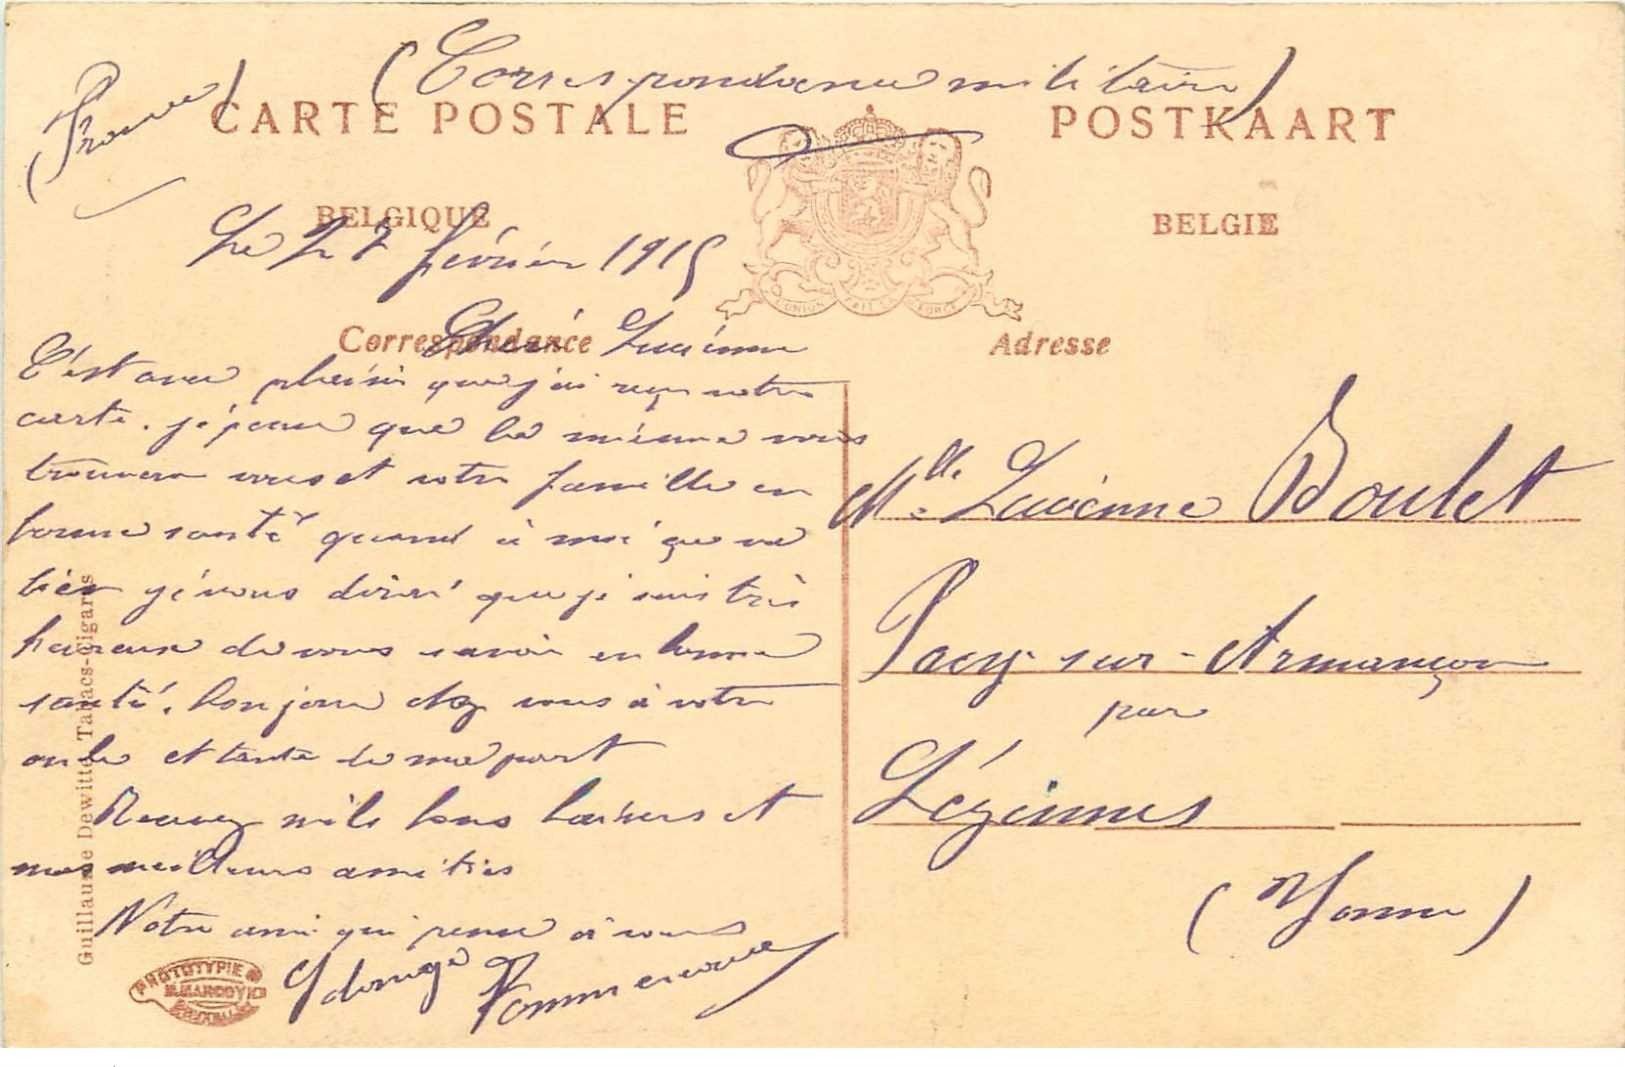 (Correspondance militaire)
(France)
CARTE POSTALE
POSTKAART
BELGIQUE
BELGIE
L'UNION FAIT LA FORCE
Le 27 février 1915
Correspondance
Adresse
Cheré Lucienne
C'est avec plaisir que j'ai reçu votre
carte. je pense que la mienne vous
trouvera vous et votre famille en
bonne santé quand à moi ça va
bien je vous dirai que je suis très
heureux de vous savoir en bonne
santé. bonjour chez vous à votre
oncle et tante de ma part
Recevez mile bons baisers et
mes meilleurs amitiés
Votre ami qui pense à vous
Mlle. Lucienne Boulet
Pacy-sur-Armançon
par
Lézinnes
(Yonne)
Guillaume Dewitte, Tabacs-Cigares
PROTOTYPIE
BRUXELLES